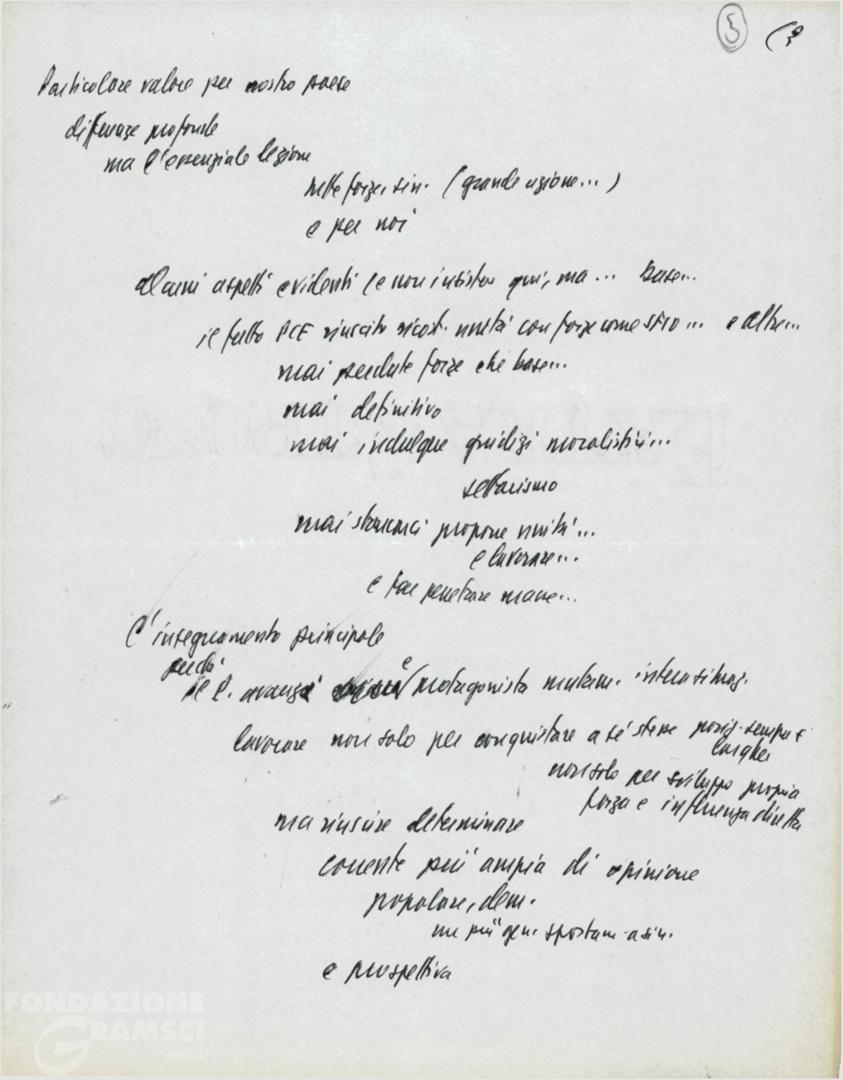 5 (3
Particolare valore per nostro paese
differenze profonde
ma l'essenziale lezione
nelle forze, sin. (grande azione...)
e per noi
alcuni aspetti evidenti (e non insisto qui, ma... base...
il fatto PCF riuscito ricost. unità con forze come SFIO... e altre...
mai perdute forze che base...
mai definitivo
mai indulgere giudizi moralistici...
settarismo
mai stancarci proporre unità...
e lavorare...
e far penetrare masse...
L'insegnamento principale
perché
P. avanzi e protagonista mutam.
lavorare non solo per conquistare a sé stesse posiz. sempre +
larghe
non solo per sviluppo propria
forza e influenza diretta
ma riuscire determinare
corrente più ampia di opinione
popolare, dem.
un più gen. spostam. a sin.
e prospettiva
FONDAZIONE
GRAMSCI